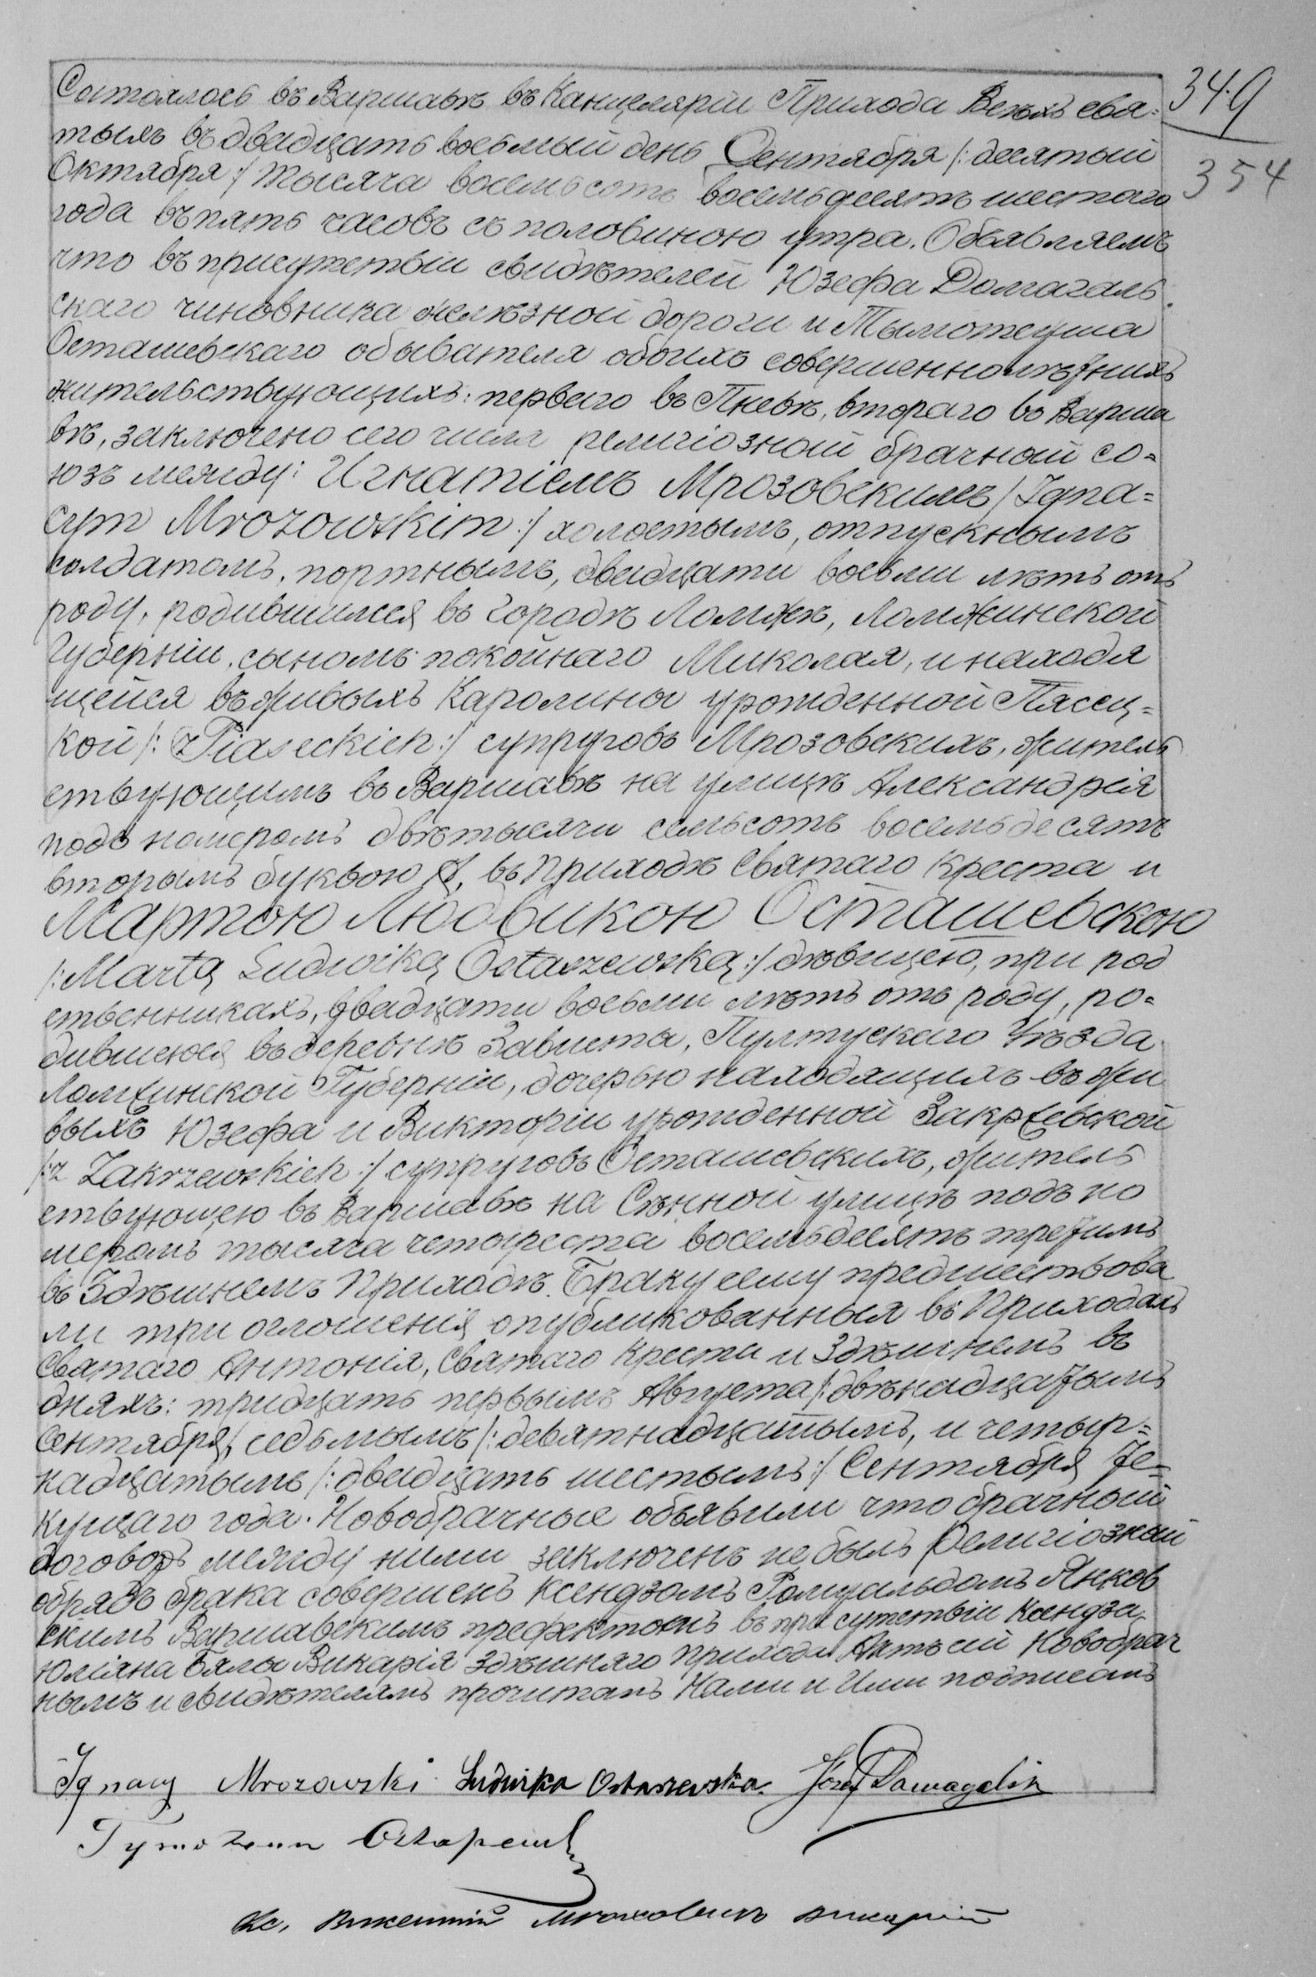 Состоялось въ Варшавѣ въ Канцеляріи Прихода Всѣхъ свя-
тыхъ въ двадцать восьмый день Сентября /: десятый
Октября :/ тысяча восемьсотъ восемьдесятъ шестаго
года въ пять часовъ съ половиною утра. Объявляемъ
что въ присутствіи свидѣтелей Юзефа Домагаль
скаго чиновника желѣзной дороги и Тымотеуша
Осташевскаго обывателя обоихъ совершеннолѣтнихъ
жительствующихъ: перваго въ Пневѣ, втораго въ Варша
вѣ, заключено сего числа религіозный брачный со-
юзъ между: Игнатіемъ Мрозовскимъ /: Igna-
cym Mrozowskim :/ холостымъ, отпускнымъ
солдатомъ, портнымъ, двадцати восьми лѣтъ отъ
роду, родившимся въ городѣ Ломжѣ, Ломжинской
Губерніи, сыномъ покойнаго Миколая, и находя
щейся въ живыхъ Каролины урожденной Пясец-
кой /: z Piaseckich :/ супруговъ Мрозовскихъ, житель
ствующимъ въ Варшавѣ на улицѣ Александрія
подъ номеромъ двѣ тысячи семьсотъ восемьдесятъ
вторымъ буквою А, въ Приходѣ Святаго Креста и
Мартою Людвикою Осташевскою
/: Martą Ludwiką Ostaszewską :/ дѣвицею, при род
ственникахъ, двадцати восьми лѣтъ отъ роду, ро-
дившеюся въ деревнѣ Зависта, Пултускаго Уѣзда
Ломжинской Губерніи, дочерью находящихся въ жи
выхъ Юзефа и Викторіи урожденной Закржевской
/: z Zakrzewskich :/ супруговъ Осташевскихъ, житель
ствующею въ Варшавѣ на Сѣнной улицѣ подъ но
меромъ тысяча четыреста восемьдесятъ третимъ
въ Здѣшнемъ Приходѣ. Браку сему предшествова
ли три оглошенія опубликованныя въ Приходахъ
Святаго Антонія, Святаго Креста и Здѣшнемъ въ
дняхъ: тридцать первымъ Августа /: двѣнадцатымъ
Сентября/, седьмымъ /: девятнадцатымъ, и четыр-
надцатымъ /: двадцать шестымъ :/ Сентября те-
кущаго года. Новобрачные объявили что брачный
договоръ между ними заключенъ не былъ Религіозный
обрядъ брака совершенъ Ксендзомъ Ромуальдомъ Янков
скимъ Варшавскимъ префектомъ въ присутствіи Ксендза
Юліяна Бялы Викарія Здѣшняго Прихода Актъ сей Новобрач
нымъ и свидѣтелямъ прочитанъ Нами и Ими подписанъ
Ignacy Mrozowski Ludwika Ostaszewska. Józef
Кс. викарій
349
354